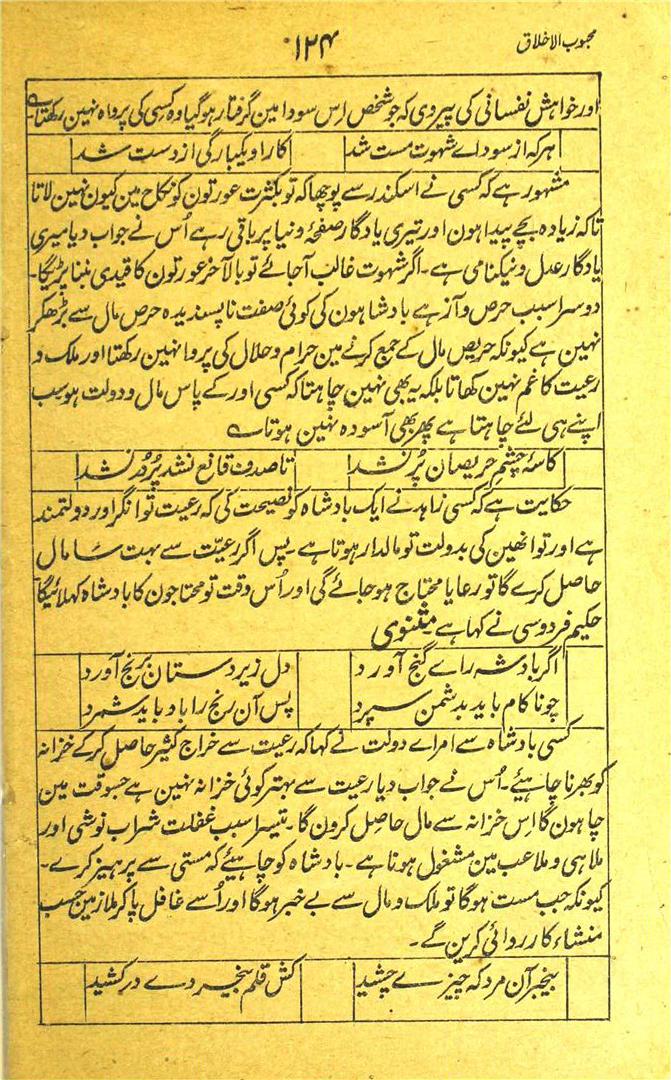 محبوب الاخلاق
۱۲۴
اور خواہش نفسانی کی پیروی کہ جو شخص اس سودا مین گرفتار ہو گیا وہ کسی کی پرواہ نہین رکھتا ؎
ہرکہ از سوداے شہوت مست شد کار او یکبارگی از دست شد
مشہور ہے کہ کسی نے اسکندر سے پوچھا کہ تو بکثرت عورتون کو نکاح مین کیون نہین لاتا
تاکہ زیادہ بچے پیدا ہون اور تیری یادگار صفحۂ دنیا پر باقی رہے اُس نے جواب دیا میری
یادگار عدل و نیکنامی ہے۔ اگر شہوت غالب آجائے تو بالآخر عورتون کا قیدی بننا پڑیگا۔
دوسرا سبب حرص و آز ہے بادشاہون کی کوئی صفت ناپسندیدہ حرص مال سے بڑھکر
نہین ہے کیونکہ حریص مال کے جمع کرنے مین حرام و حلال کی پروا نہین رکھتا اور ملک و
رعیت کا غم نہین کھاتا بلکہ یہ بھی نہین چاہتا کہ کسی اور کے پاس مال و دولت ہو سب
اپنے ہی لئے چاہتا ہے پھر بھی آسودہ نہین ہوتا ؎
کاسۂ چشم حریصان پُر نشد تا صدف قانع نشد پُر دُر نشد
حکایت ہے کہ کسی زاہد نے ایک بادشاہ کو نصیحت کی کہ رعیت توانگر اور دولتمند
ہے اور تو انھین کی بدولت تو مالدار ہوتا ہے۔ پس اگر رعیّت سے بہت سا مال
حاصل کرے گا تو رعایا محتاج ہو جائے گی اور اُس وقت تو محتاجون کا بادشاہ کہلائیگا
حکیم فردوسی نے کہا ہے مثنوی
اگر بادشہ راے گنج آورد دل زیردستان برنج آورد
چو ناکام باید بدشمن سپرد پس آن رنج را باد باید شمرد
کسی بادشاہ سے امراے دولت نے کہا کہ رعیت سے خراج کثیر حاصل کر کے خزانہ
کو بھرنا چاہیئے۔ اُس نے جواب دیا رعیت سے بہتر کوئی خزانہ نہین ہے جسوقت مین
چاہون گا اِس خزانہ سے مال حاصل کرون گا۔ تیسرا سبب غفلت شراب نوشی اور
ملاہی و ملاعب مین مشغول ہونا ہے۔ بادشاہ کو چاہیئے کہ مستی سے پرہیز کرے۔
کیونکہ جب مست ہوگا تو ملک و مال سے بے خبر ہوگا اور اُسے غافل پا کر ملازمین حسب
منشاء کارروائی کرین گے۔
بیخبر آن مرد کہ چیزے چشید کش قلم بیخردے درکشید